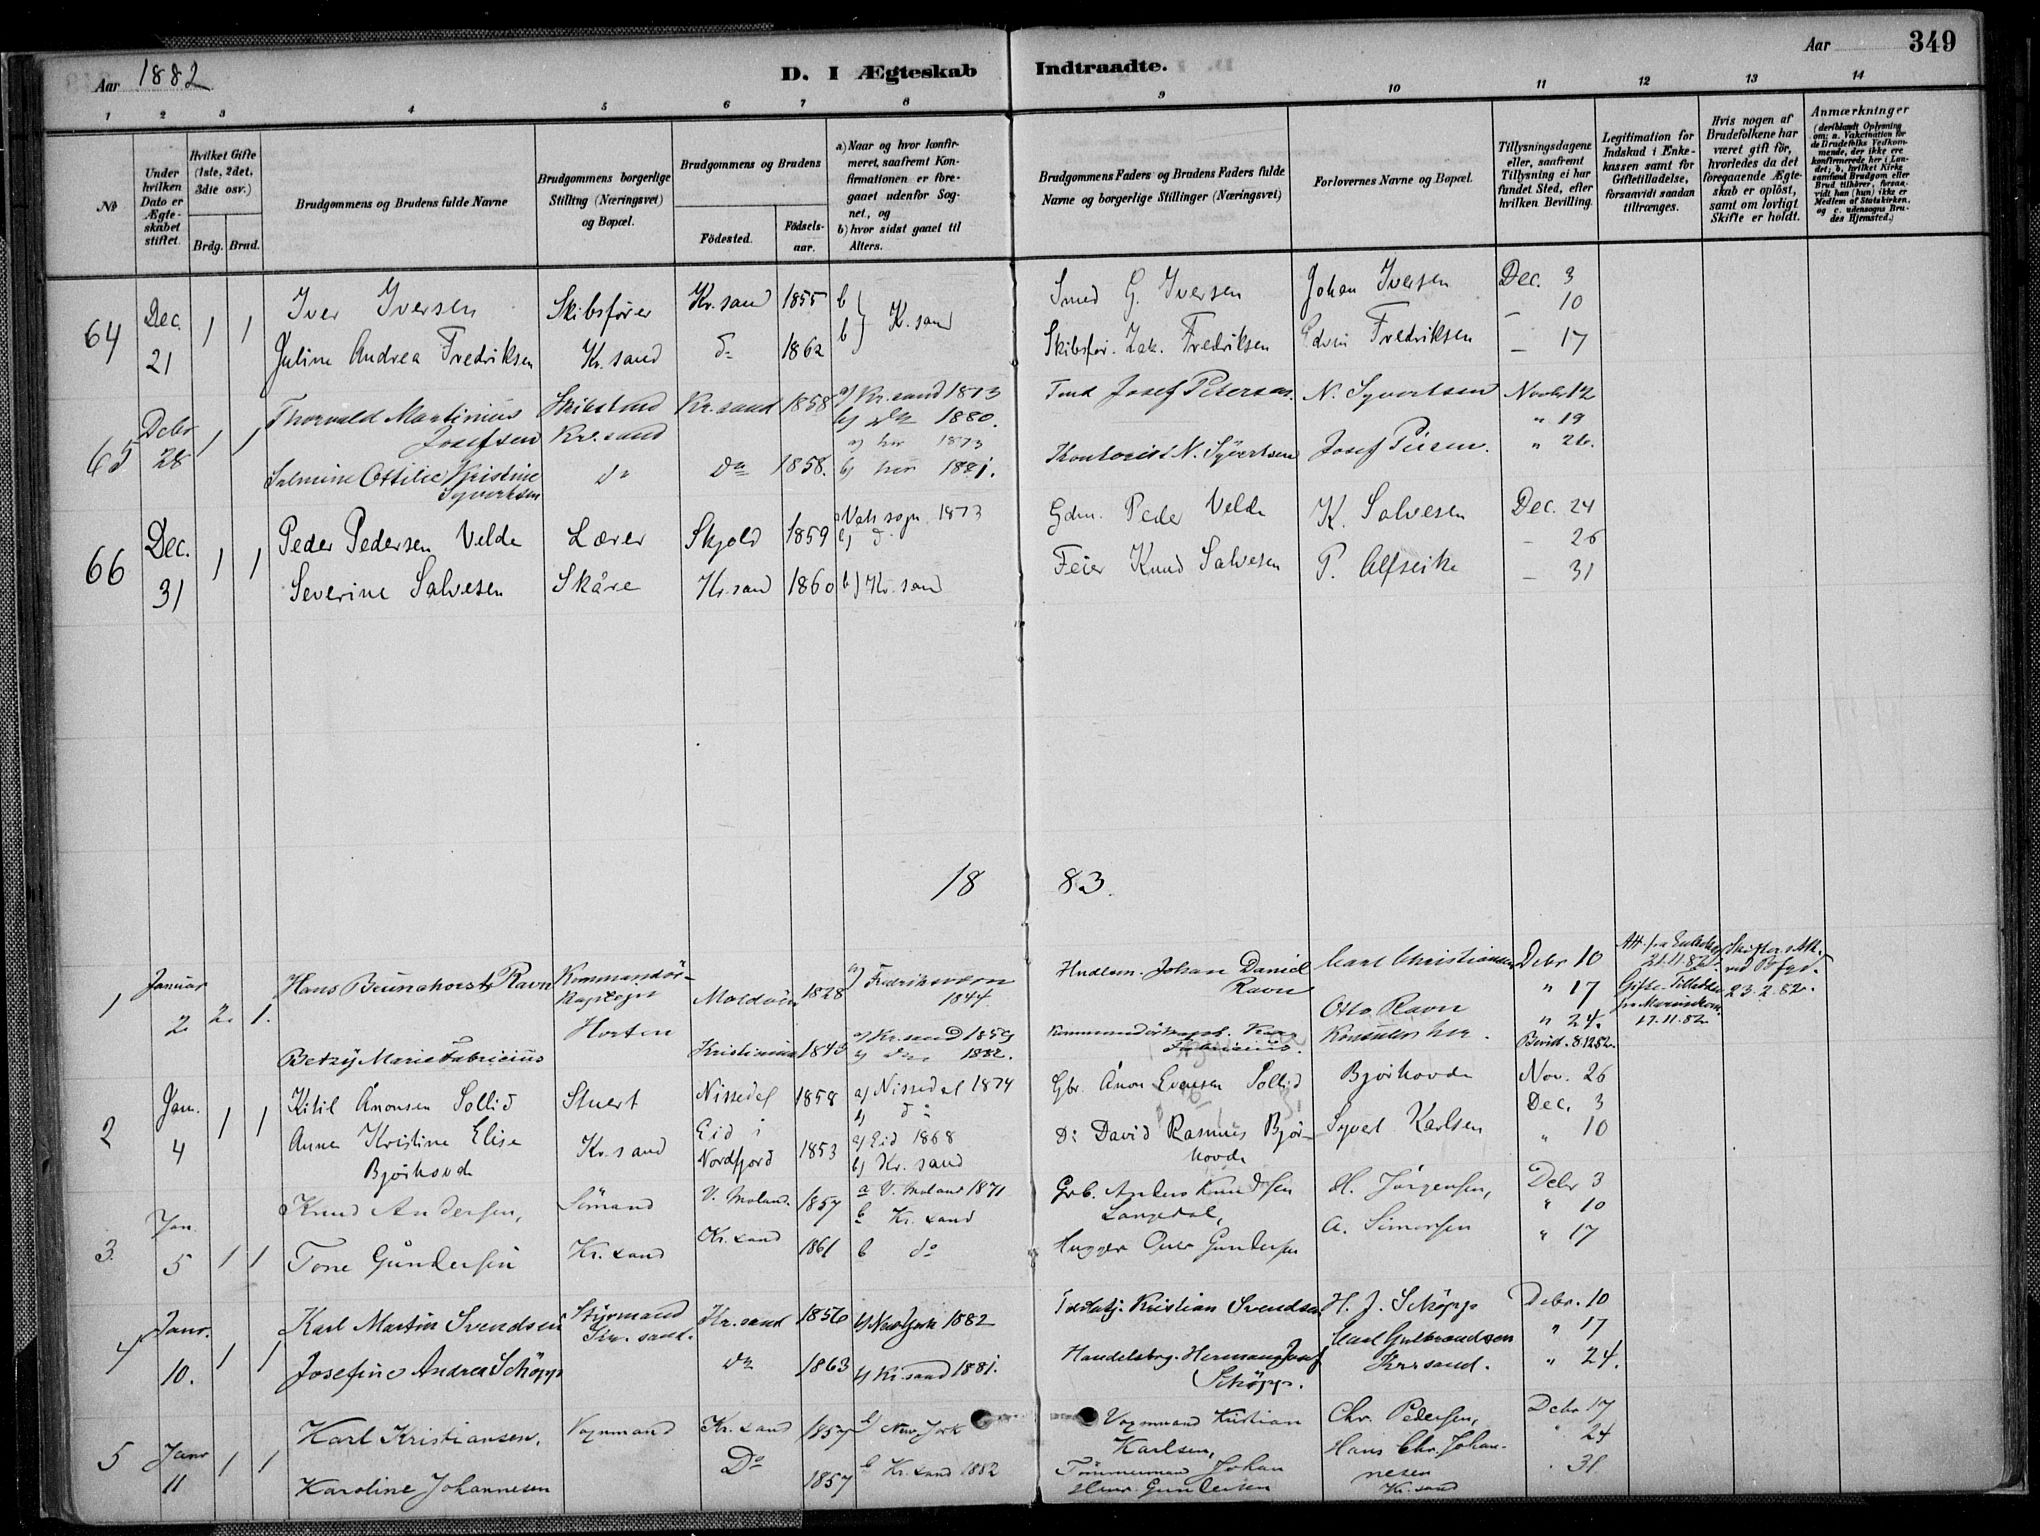 Aar 1882
D. I Ægteskab Indtraadte.
Aar 349
1 2 3 4 5 6 7 8 9 10 11 12 13 14
№
Under hvilken Dato er Ægteskabet stiftet.
Hvilket Gifte (1ste, 2det, 3die osv.)
Brdg. Brud.
Brudgommens og Brudens fulde Navne
Brudgommens borgerlige Stilling (Næringsvei) og Bopæl.
Brudgommens og Brudens
Födested. Födselsaar.
a) Naar og hvor konfirmeret, saafremt Konfirmationen er foregaaet udenfor Sognet, og
b) hvor sidst gaaet til Alters.
Brudgommens Faders og Brudens Faders fulde Navne og borgerlige Stillinger (Næringsvei)
Forlovernes Navne og Bopæl.
Tillysningsdagene eller, saafremt Tillysning ei har fundet Sted, efter hvilken Bevilling.
Legitimation for Indskud i Enkekassen samt for Giftetilladelse, forsaavidt saadan tiltrænges.
Hvis nogen af Brudefolkene har været gift för, hvorledes da det foregaaende Ægteskab er oplöst, samt om lovligt Skifte er holdt.
Anmærkninger (deriblandt Oplysning om: a. Vakcination for de Brudefolks Vedkommende, der ikke ere konfirmerede her i Landet; b. hvilket Kirkesamfund Brudgom eller Brud tilhörer, forsaavidt han (hun) ikke er Medlem af Statskirken, og c. udensogns Brudes Hjemsted.)
64 Dec. 21 1 1 Iver Iversen Skibsfører Kr.sand 1855 b Smed G. Iversen Johan Iversen Dec. 3
b } K.sand – 10
Juline Andrea Fredriksen Kr.sand do 1862 Skibsfør. Zak. Fredriksen Edvin Fredriksen – 17
65 Debr 28 1 1 Thorvald Martinius Josefsen Skibstmd Kr.sand Kr.sand 1858 a) Kr.sand 1873 b) do 1880. Tmd Josef Petersen. N. Syvertsen Novbr 12
" 19
Salmine Ottilie Kristine Syvertsen do do 1858. a) her 1873 b) her 1881. Kontorist N. Syvertsen Josef " 26.
66 Dec. 31 1 1 Peder Pedersen Velde Lærer Skjold 1859 Vats sogn 1873 b) do Gdm. Peder Velde K. Salvesen Dec. 24
– 26
Severine Salvesen Skåre Kr.sand 1860 b) Kr.sand Feier Knud Salvesen P. Alfseike – 31
1883.
1 Januar 2 2. 1. Hans Brunchorst Ravn Kommandörkaptejn Horten Moldöen 1828 a) Fredriksværn 1844 Hndlsm. Johan Daniel Ravn Carl Christiansen Debr 10
" 17
Otto Ravn " 24.
Betzÿ Marie Fabricius Kristiania 1843 a) Kr.sand 1859 b) do 1882. Fabricius. Bevil. 8.12.82.
21.11.82. Gifte-Tilladelse 17.11.82
23.2.82.
2 Jan. 4 1 1 Kitil Ånonsen Sollid Stuert Nissedal 1858 a) Nissedal 1874 b) do Gbr. Ånon Evensen Sollid Bjørhovde Nov. 26
Dec. 3
Anne Kristine Elise Bjørhovde Kr.sand Eid i Nordfjord 1853 a) Eid 1868 b) Kr.sand Do David Rasmus Bjørhovde Syvert Karlsen " 10
3. Jan. 5 1 1 Knud Andersen, Sömand V. Moland. 1857 a V. Moland 1871 b Kr.sand Grb. Anders Knudsen Langedal, H. Jørgensen, Debr 3
" 10
Tone Gundersen Kr.sand Kr.sand 1861 b do Hugger Gundersen A. Simonsen " 17
4 Janr. 10. 1 1 Karl Martin Svendsen Styrmand Kr.sand. Kr.sand 1856 b) New York 1882 Kristian Svendsen H. J. Schöpp Debr. 10
" 17
Josefine Andrea Schöpp do 1863 b) Kr.sand 1881. Handelsbrg. Herman Josef Schöpp. Carl Gulbrandsen Kr.sand. " 24.
5 Janr 11 1 1 Karl Kristiansen. Vognmand Kr.sand 1857 b) New York Vognmand Kristian Karlsen, Chr. Pedersen, Debr 17
" 24
Karoline Johannesen Do 1857 b Kr.sand 1882 Tømmermand Johan Gundersen Hans Chr. Johannesen Kr.sand " 31